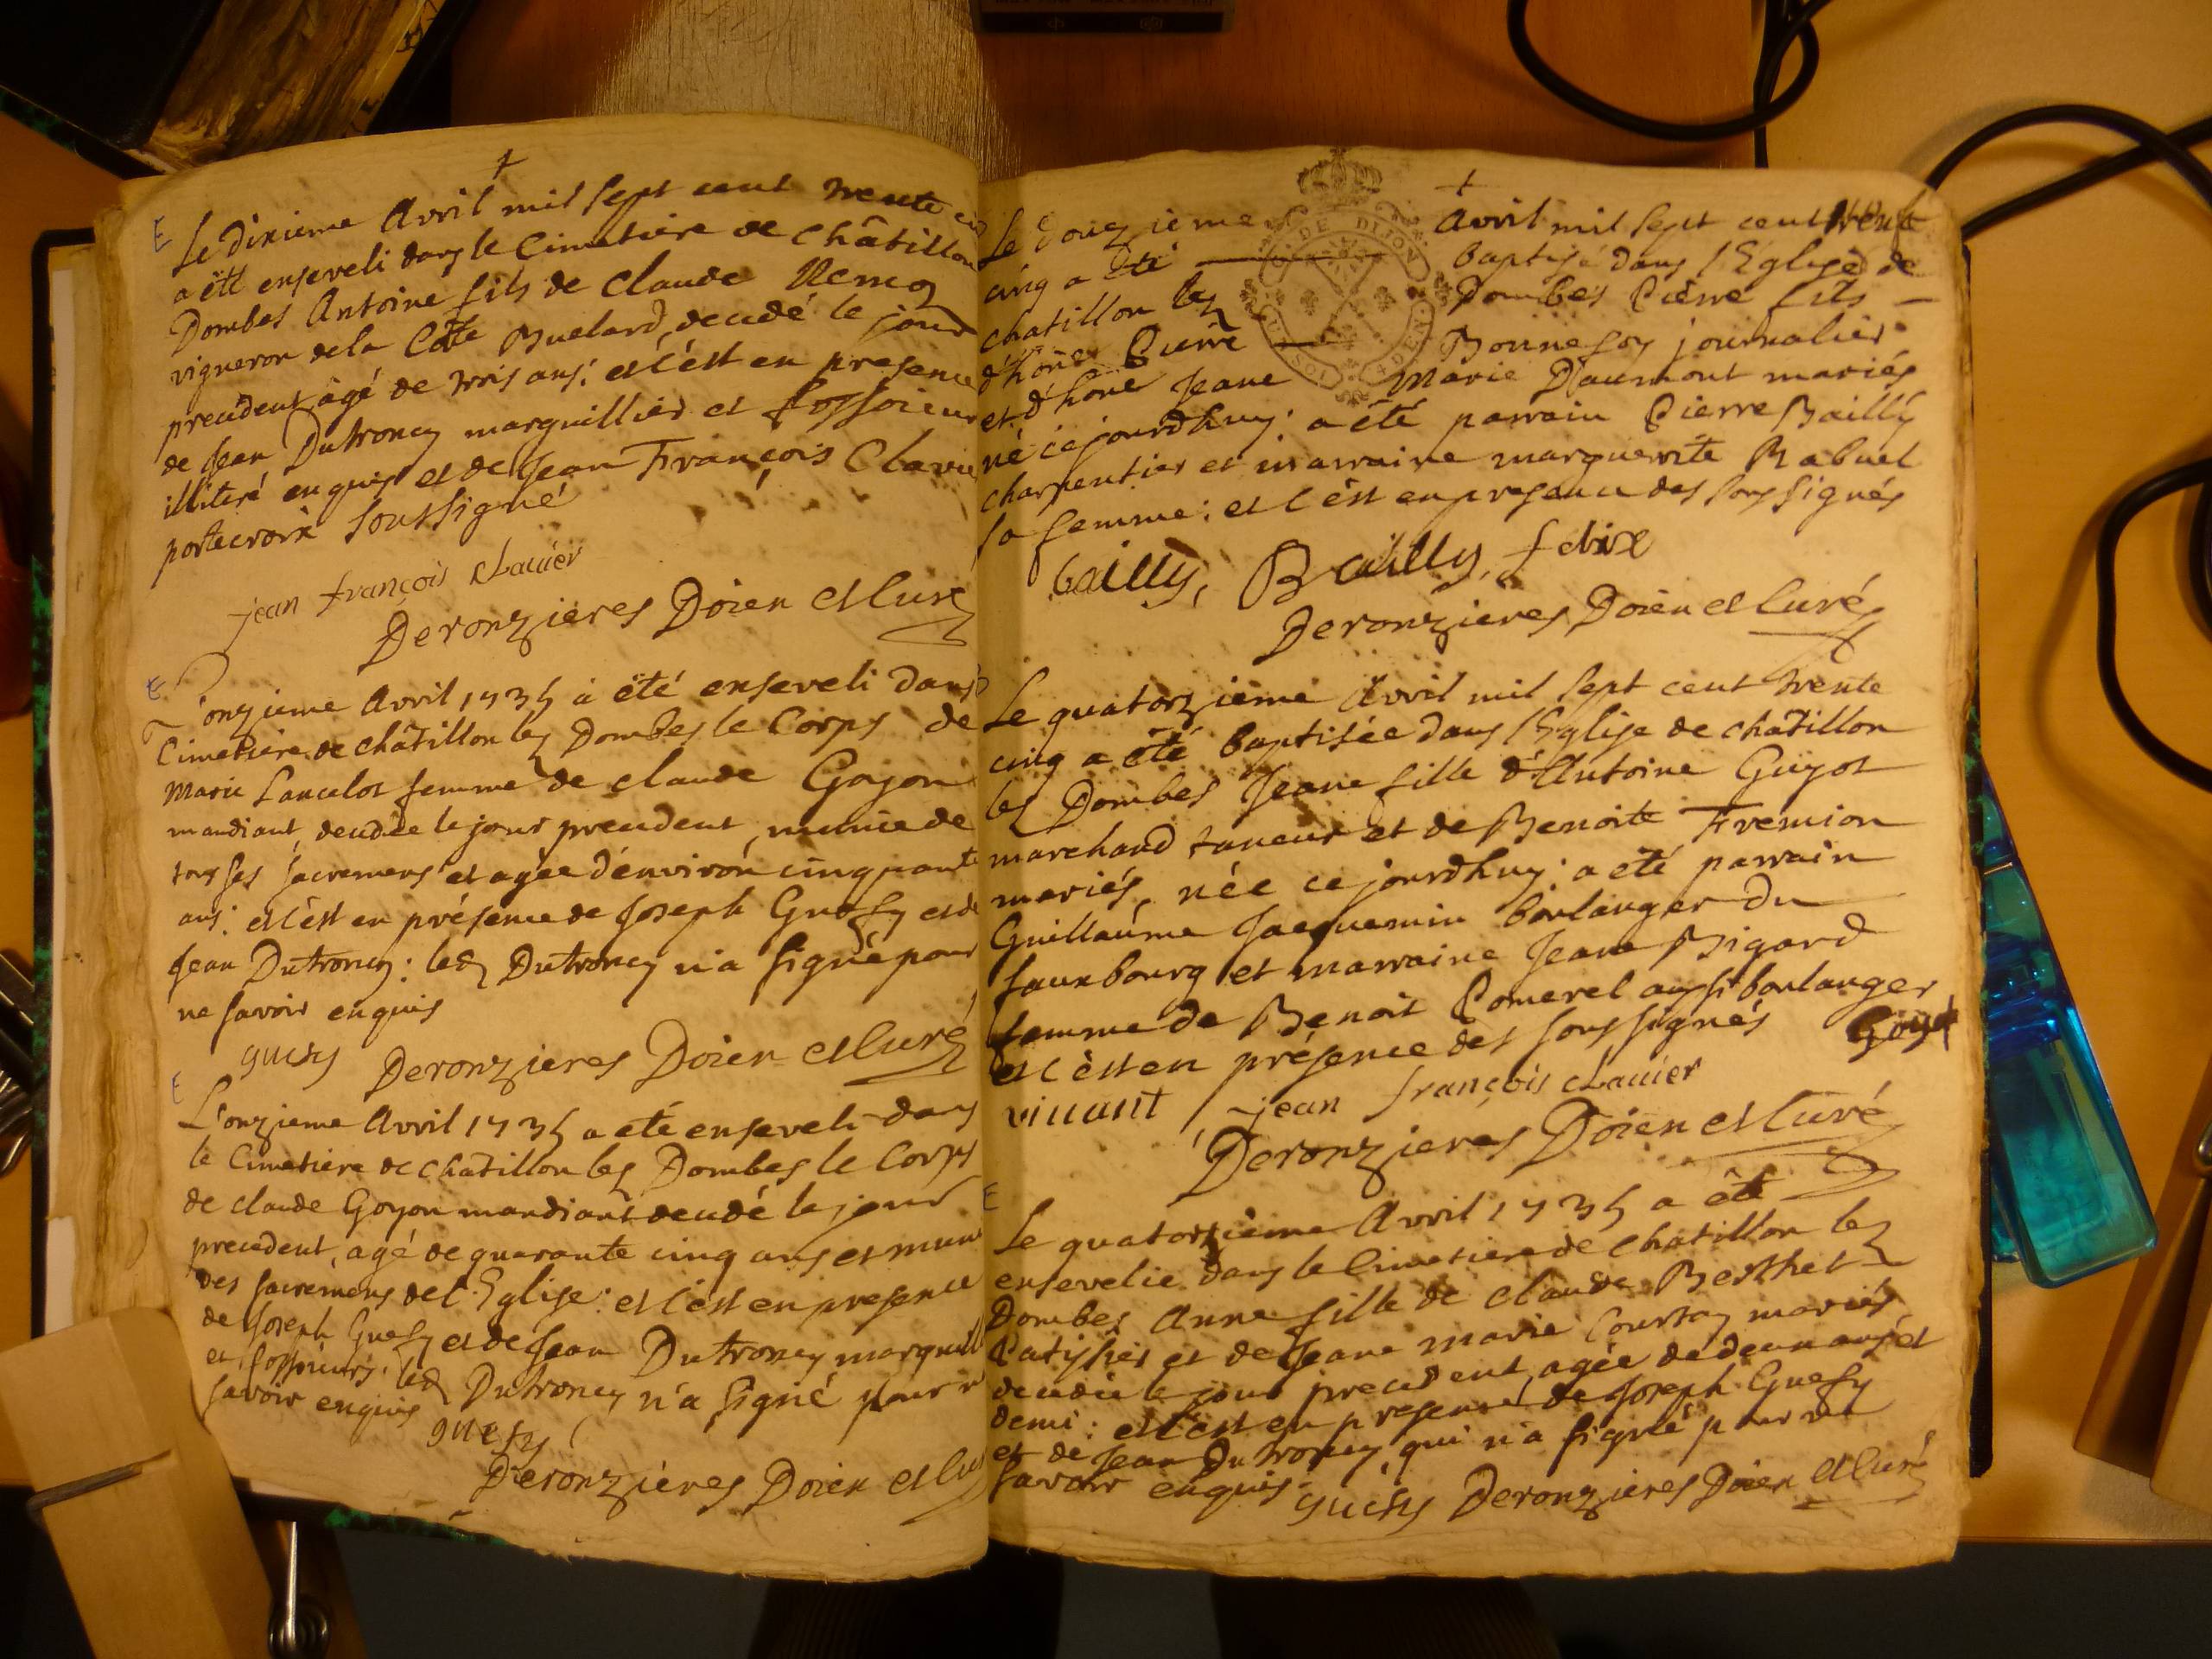 +
Le dixieme Avril mil sept cent trente
a été enseveli dans le Cimetiere de Châtillon
Dombes Antoine fils de Claude
vigneron de la Côte Buelard, decedé le jour
precedent, âgé de trois ans: et c'est en presence
de Jean Dutroncy marguillier et fossoieur
illiteré enquis et de Jean François Clavier
portecroix soussigné
jean françois clavier
Deronzieres Doien et Curé
L'onzieme Avril 1735 a été enseveli dans
Cimetiere de châtillon les Dombes le Corps de
Marie Lancelot femme de claude Goyon
mandiant, decedée le jour precedent, munie de
tous ses sacremens et agée d'environ cinquante
ans: et c'est en présence de Joseph Guesy et de
Jean Dutroncy: led Dutroncy n'a signé pour
ne savoir enquis
guesy Deronzieres Doien et Curé
L'onzieme Avril 1735 a été enseveli dans
le Cimetiere de chatillon les Dombes le Corps
de claude Goyon mandiant decedé le jour
precedent, agé de quarante cinq ans et muni
des sacremens de l'Eglise: et c'est en presence
de Joseph Guesy et de Jean Dutroncy marguill
et fossoieurs. led Dutroncy n'a signé pour n
savoir enquis
guesy
Deronzières Doien et Cu
+
Le douzieme Avril mil sept cent trente
cinq a été baptisé dans l'Eglise de
chatillon les Dombes Pierre fils
d'hone Pierre Bonnefoy journalier
et d'hone Jeane Marie Daumont mariés
né cejourdhuy: a été parrain Pierre Bailly
charpentier et marraine marguerite Rabuel
sa femme: et c'est en presence des soussignés
bailly, Bailly, felix
Deronzieres Doien et Curé
Le quatorzieme Avril mil sept cent trente
cinq a été baptisée dans l'Eglise de chatillon
les Dombes Jeane fille d'Antoine Guyot
marchand taneur et de Benoite Fremion
mariés, née ce jourdhuy: a été parrain
Guillaume Jacquemin boulanger du
fauxbourg et marraine Jeane Bigard
femme de Benoit Pomerel aussi boulanger
et c'est en présence des soussignés Goyot
vivant jean françois clavier
Deronzieres Doien et Curé
Le quatorzieme Avril 1735 a été
ensevelie dans le Cimetiere de chatillon les
Dombes Anne fille de claude Berthet
Patissier et de Jeane marie Courtoy mariés
decedée le jour precedent, agée de deux ans et
demi: et c'est en presence de Joseph Guesy
et de Jean Dutroncy, qui n'a signé pour ne
savoir enquis. guesy Deronzieres Doien et Curé